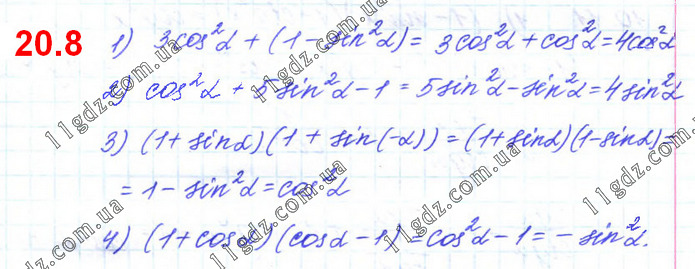 20.8
1) 3cos²α + (1 − sin²α) = 3cos²α + cos²α = 4cos²α
2) cos²α + 5sin²α − 1 = 5sin²α − sin²α = 4sin²α
3) (1 + sinα)(1 + sin(−α)) = (1 + sinα)(1 − sinα) =
= 1 − sin²α = cos²α
4) (1 + cosα)(cosα − 1) = cos²α − 1 = − sin²α.
11gdz.com.ua
11gdz.com.ua
11gdz.com.ua
11gdz.com.ua
11gdz.com.ua
11gdz.com.ua